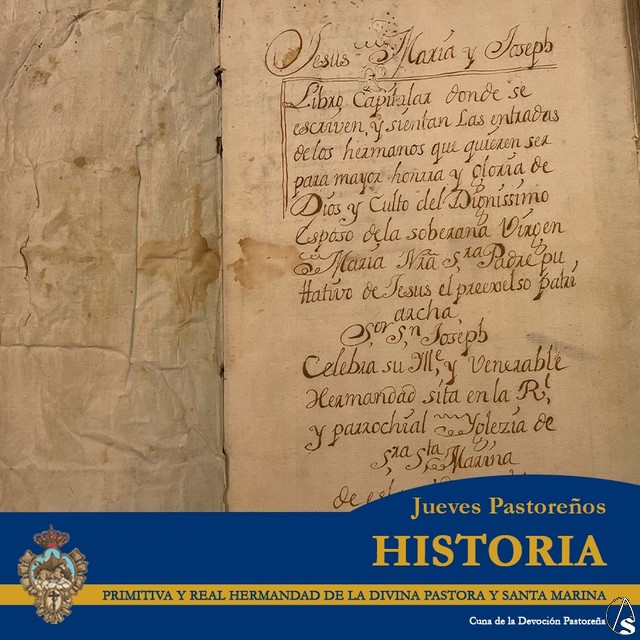 Jesus Maria y Joseph
Libro Capitular donde se
escriven, y sientan Las entradas
de los hermanos que quieren ser
para mayor honrra y gloria de
Dios y Culto del Dignissimo
Esposo de la soberana Virgen
Maria Nrã Sra Padre pu
tativo de Jesus el preexelso patri
archa
Sor Sn Joseph
Celebra su Me, y Venerable
Hermandad sita en la Rl,
y parrochial Yglezia de
Sra Sta Marina
Jueves Pastoreños
HISTORIA
PRIMITIVA Y REAL HERMANDAD DE LA DIVINA PASTORA Y SANTA MARINA
Cuna de la Devoción Pastoreña